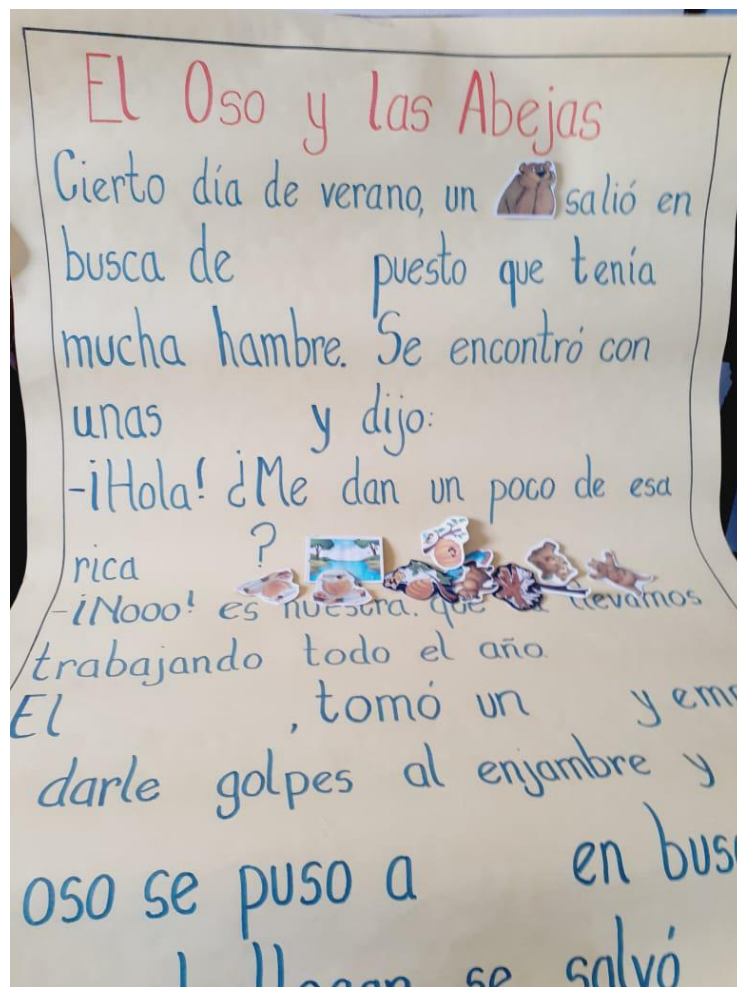 El Oso y las Abejas
Cierto día de verano, un salió en
busca de puesto que tenía
mucha hambre. Se encontró con
unas y dijo:
-¡Hola! ¿Me dan un poco de esa
rica ?
-¡Nooo! es nuestra. que llevamos
trabajando todo el año.
El , tomó un y em
darle golpes al enjambre y
oso se puso a en bus
se salvó